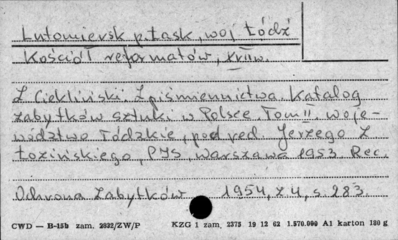 Lutomiersk p. Łask, woj Łódź
Kościół reformatów, XVII w.
Z Ciekliński Z piśmiennictwa Katalog
zabytków sztuki w Polsce Tom II woje-
wództwo Łódzkie, pod red. Jerzego Z
Łozińskiego, PIS, Warszawa 1953. Rec.
Ochrona Zabytków 1954, z 4, s. 283.
CWD — B-15b zam. 2022/ZW/P KZG 1 zam. 2375 19 12 62 1.570.000 A1 karton 180 g